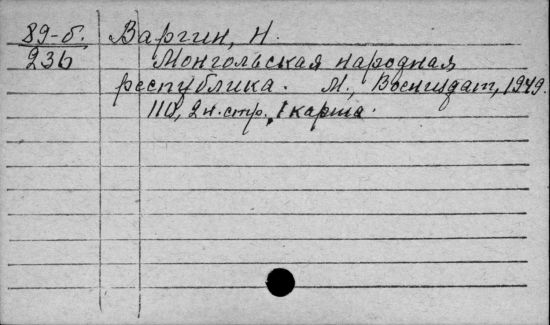 89-б. Варгин, Н.
236 Монгольская народная
республика. М., Воениздат, 1949.
110, 2 н. стр., 1 карта.